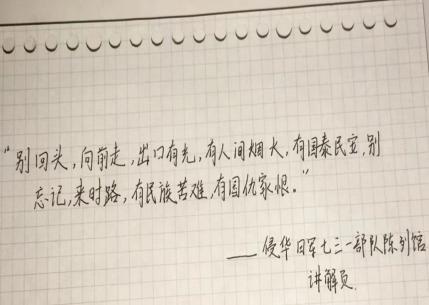 “别回头,向前走,出口有光,有人间烟火,有国泰民安,别
忘记,来时路,有民族苦难,有国仇家恨。”
——侵华日军七三一部队陈列馆
讲解员